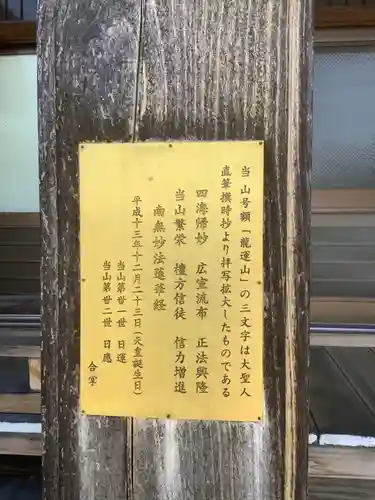 当山号額「龍運山」の三文字は大聖人
直筆撰時抄より拝写拡大したものである
四海帰妙 広宣流布 正法興隆
当山繁栄 檀方信徒 信力増進
南無妙法蓮華経
平成十三年十二月二十三日(天皇誕生日)
当山第丗一世 日運
当山第丗二世 日應
合掌